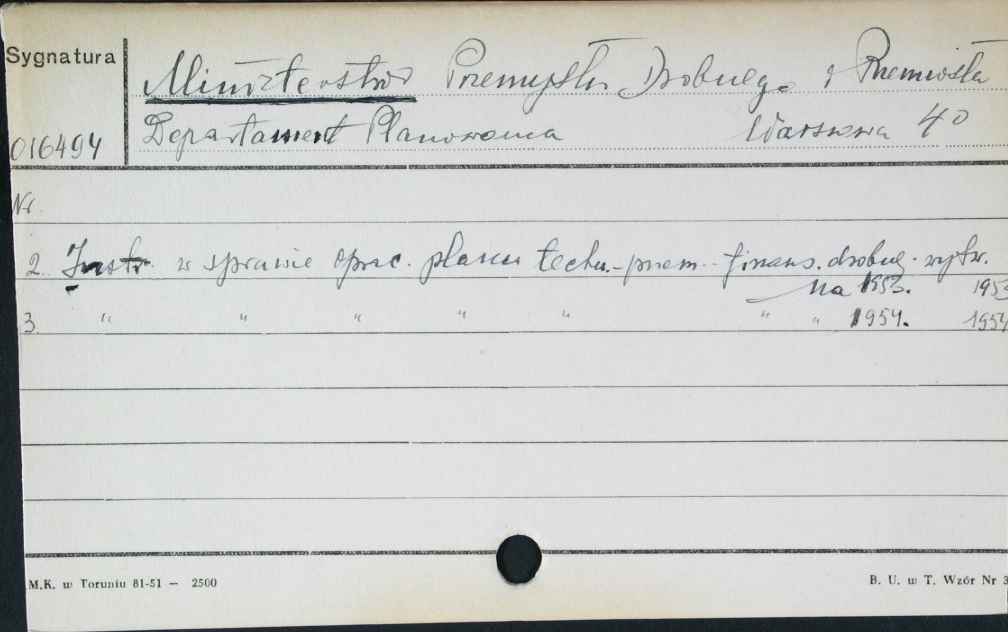 Sygnatura
Ministerstwo Przemysłu Drobnego i Rzemiosła
016494 Departament Planowania Warszawa 40
Nr.
2. Instr. w sprawie oprac. planu techn.-przem.-finans. drobnej wytw.
na 1953. 1953
3. " " " " " " " 1954. 1954
M.K. w Toruniu 81-51 — 2500 B. U. w T. Wzór Nr 3